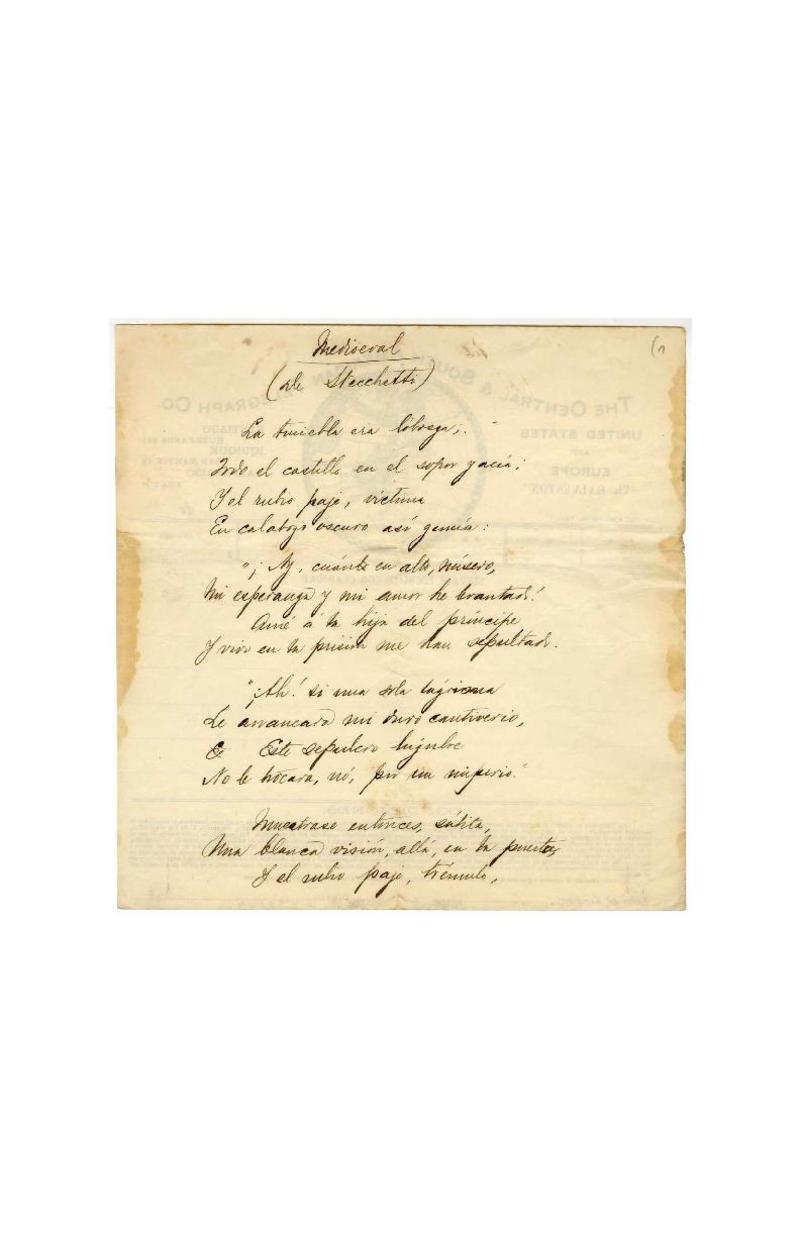 Medioeval
(de Stecchetti)
La tiniebla era lóbrega;
Todo el castillo en el sopor yacía;
Y el rubio paje, víctima
En calabozo oscuro así gemía:
"¡Ay, cuánto en alto, mísero,
Mi esperanza y mi amor he levantado!
Amé á la hija del príncipe
Y vivo en la prisión me han sepultado.
"¡Ah! si una sola lágrima
Le arrancara mi duro cautiverio,
Este sepulcro lúgubre
No le trocara, nó, por un imperio."
Muéstrase entonces, súbita,
Una blanca visión, allá, en la puerta,
Y el rubio paje, trémulo,
THE CENTRAL & SOUTH
GRAPH CO
UNITED STATES
AND
EUROPE
"VIA GALVESTON"
IQUIQUE